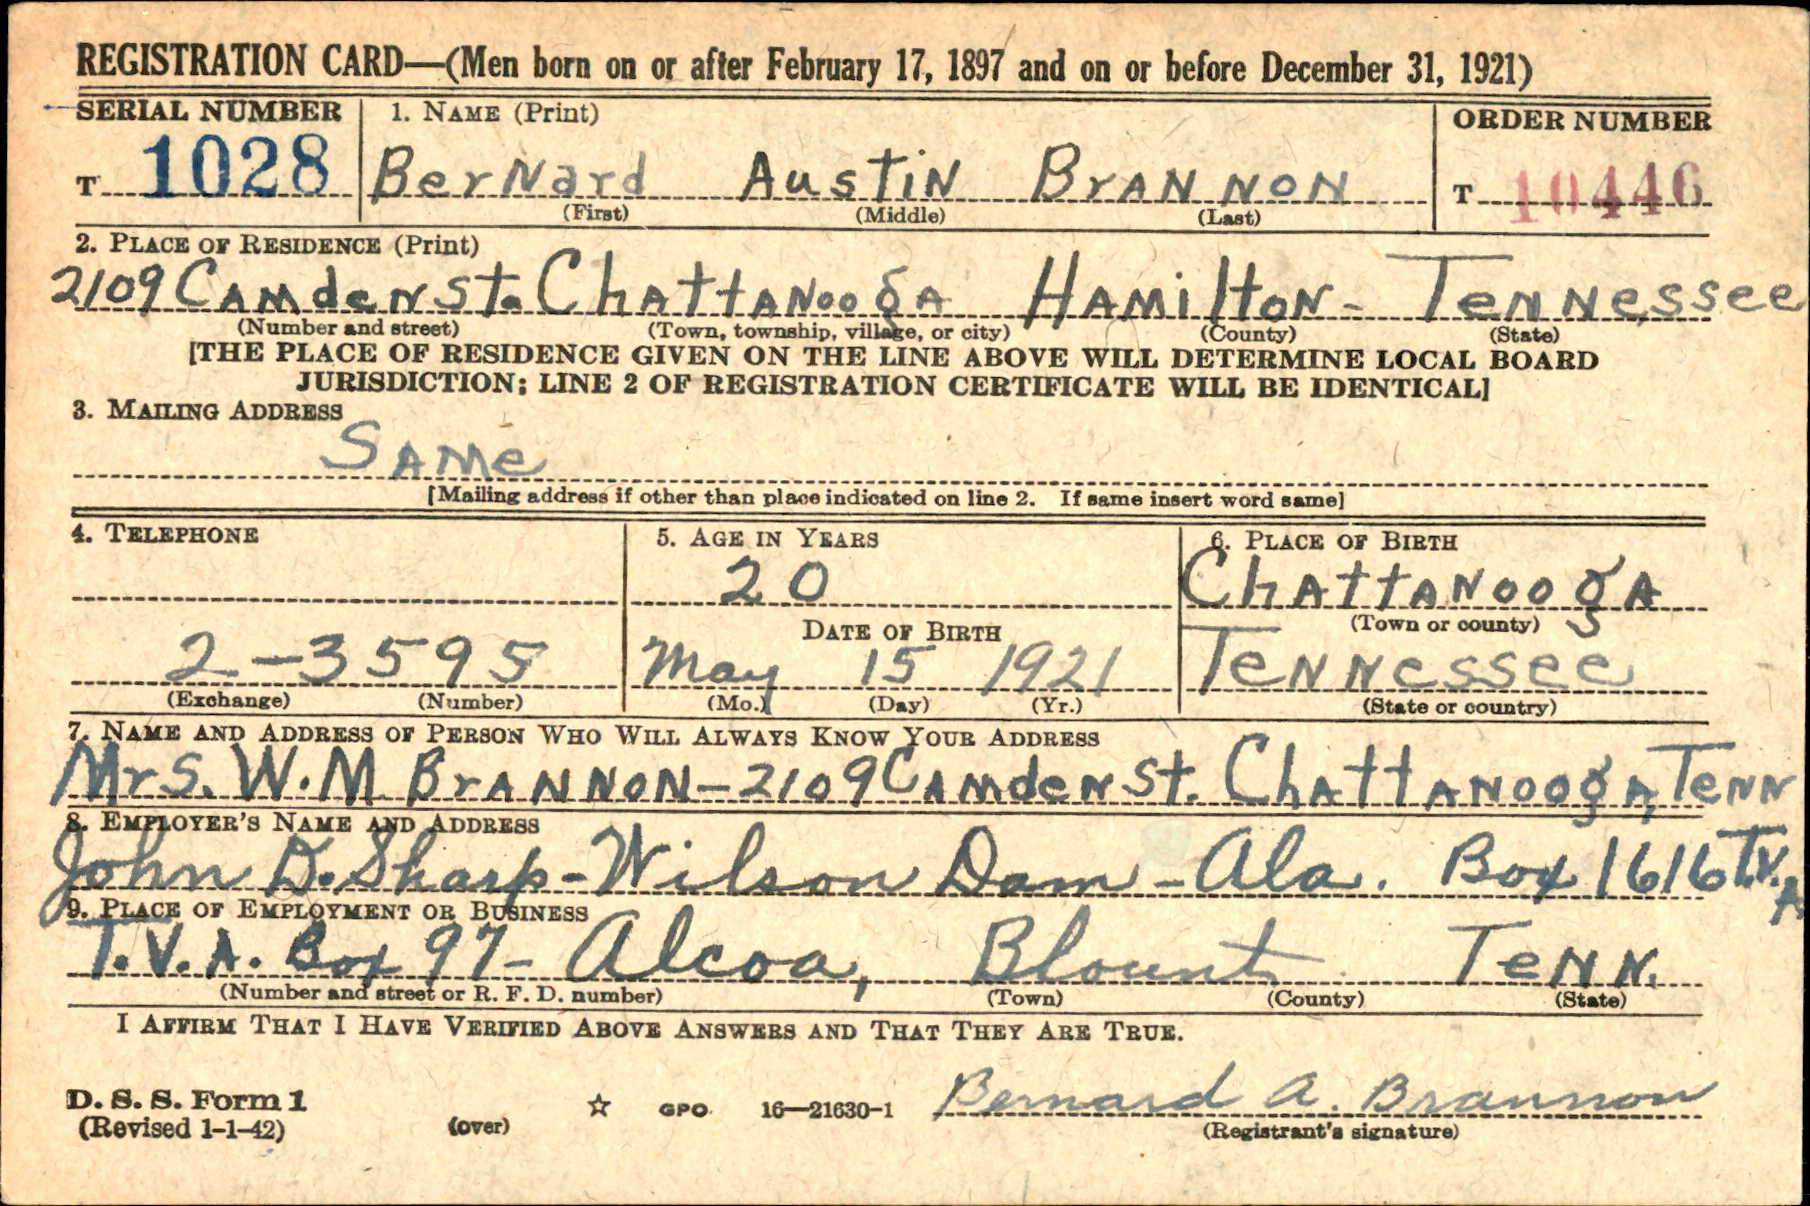 REGISTRATION CARD—(Men born on or after February 17, 1897 and on or before December 31, 1921)
SERIAL NUMBER 1. NAME (Print) ORDER NUMBER
T 1028 Bernard Austin Brannon T 10446
(First) (Middle) (Last)
2. PLACE OF RESIDENCE (Print)
2109 Camden St. Chattanooga Hamilton - Tennessee
(Number and street) (Town, township, village, or city) (County) (State)
[THE PLACE OF RESIDENCE GIVEN ON THE LINE ABOVE WILL DETERMINE LOCAL BOARD
JURISDICTION; LINE 2 OF REGISTRATION CERTIFICATE WILL BE IDENTICAL]
3. MAILING ADDRESS
Same
[Mailing address if other than place indicated on line 2. If same insert word same]
4. TELEPHONE 5. AGE IN YEARS 6. PLACE OF BIRTH
20 Chattanooga
DATE OF BIRTH (Town or county)
2-3595 May 15 1921 Tennessee
(Exchange) (Number) (Mo.) (Day) (Yr.) (State or country)
7. NAME AND ADDRESS OF PERSON WHO WILL ALWAYS KNOW YOUR ADDRESS
Mrs. W.M. Brannon - 2109 Camden St. Chattanooga, Tenn
8. EMPLOYER'S NAME AND ADDRESS
John D. Sharp - Wilson Dam - Ala. Box 1616 T.V.A.
9. PLACE OF EMPLOYMENT OR BUSINESS
T.V.A. Box 97 - Alcoa, Blount Tenn.
(Number and street or R. F. D. number) (Town) (County) (State)
I AFFIRM THAT I HAVE VERIFIED ABOVE ANSWERS AND THAT THEY ARE TRUE.
D. S. S. Form 1 Bernard A. Brannon
(Revised 1-1-42) (over) ☆ GPO 16—21630-1 (Registrant's signature)